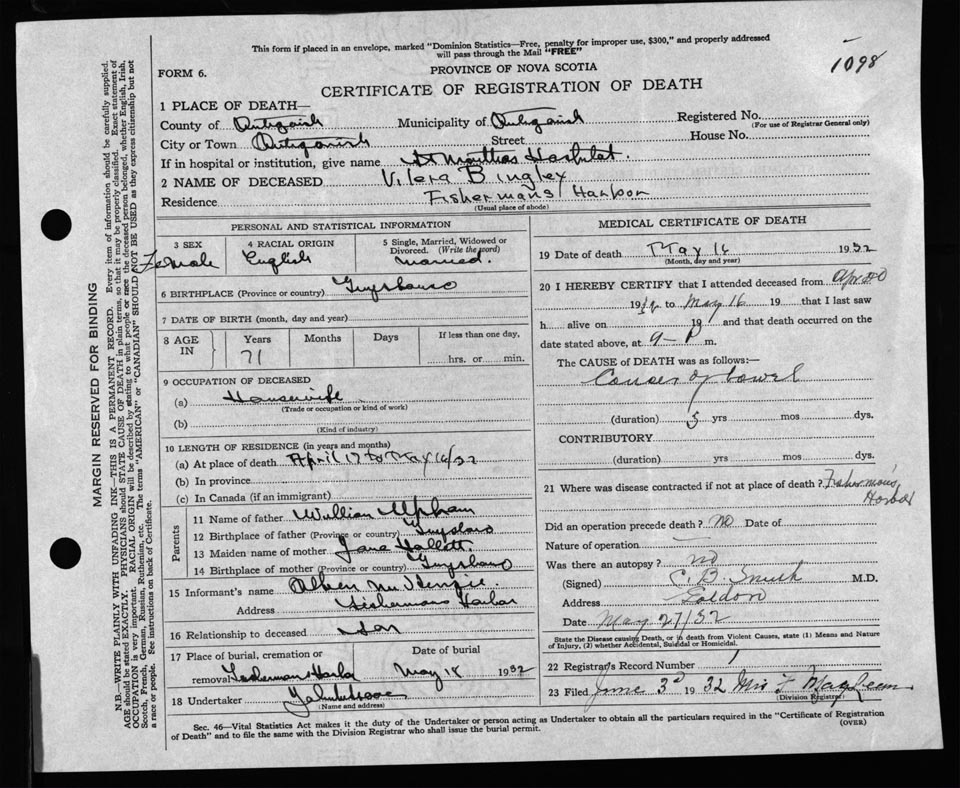 This form if placed in an envelope, marked "Dominion Statistics—Free, penalty for improper use, $300," and properly addressed
will pass through the Mail "FREE"
1098
FORM 6.
PROVINCE OF NOVA SCOTIA
CERTIFICATE OF REGISTRATION OF DEATH
1 PLACE OF DEATH—
County of Antigonish Municipality of Antigonish Registered No.
(For use of Registrar General only)
City or Town Antigonish Street House No.
If in hospital or institution, give name St Marthas Hospital.
2 NAME OF DECEASED Bingley
Residence Fishermans Harbor
(Usual place of abode)
PERSONAL AND STATISTICAL INFORMATION
3 SEX
Female
4 RACIAL ORIGIN
English
5 Single, Married, Widowed or
Divorced. (Write the word)
married.
6 BIRTHPLACE (Province or country) Guysboro
7 DATE OF BIRTH (month, day and year)
8 AGE
IN
Years
71
Months
Days
If less than one day,
hrs. or min.
9 OCCUPATION OF DECEASED
(a) Housewife
(Trade or occupation or kind of work)
(b)
(Kind of industry)
10 LENGTH OF RESIDENCE (in years and months)
(a) At place of death April 17 to May 16/32
(b) In province
(c) In Canada (if an immigrant)
Parents
11 Name of father William
12 Birthplace of father (Province or country) Guysboro
13 Maiden name of mother Jane Hallett.
14 Birthplace of mother (Province or country) Guysboro
15 Informant's name McKenzie.
Address Fishermans Harbor
16 Relationship to deceased Son
17 Place of burial, cremation or
removal Fisherman Harbor
Date of burial
May 18 1932
18 Undertaker
(Name and address)
MEDICAL CERTIFICATE OF DEATH
19 Date of death May 16 1932
(Month, day and year)
20 I HEREBY CERTIFY that I attended deceased from April
19 to May 16 19 that I last saw
h alive on 19 and that death occurred on
date stated above, at 9 P m.
The CAUSE of DEATH was as follows:—
Cancer of bowel
(duration) yrs mos dys.
CONTRIBUTORY
(duration) yrs mos dys.
21 Where was disease contracted if not at place of death? Fisherman's
Harbor
Did an operation precede death? no Date of
Nature of operation
Was there an autopsy? no
(Signed) Smith M.D.
Address Goldboro
Date May 27/32
State the Disease causing Death, or in death from Violent Causes, state (1) Means and Nature
of Injury, (2) whether Accidental, Suicidal or Homicidal.
22 Registrar's Record Number 1
23 Filed June 3d 1932
(Division Registrar)
Sec. 46—Vital Statistics Act makes it the duty of the Undertaker or person acting as Undertaker to obtain all the particulars required in the "Certificate of Registration
of Death" and to file the same with the Division Registrar who shall issue the burial permit.
(OVER)
MARGIN RESERVED FOR BINDING
N.B.—WRITE PLAINLY WITH UNFADING INK—THIS IS A PERMANENT RECORD. Every item of information should be carefully supplied.
AGE should be stated EXACTLY. PHYSICIANS should STATE CAUSE OF DEATH in plain terms, so that it may be properly classified. Exact statement of
OCCUPATION is very important. RACIAL ORIGIN will be described by stating to what people or race the deceased person belonged, whether English, Irish,
Scotch, French, German, Russian, Ruthenian, etc. The terms "AMERICAN" or "CANADIAN" SHOULD NOT BE USED as they express citizenship but not
a race or people. See instructions on back of Certificate.